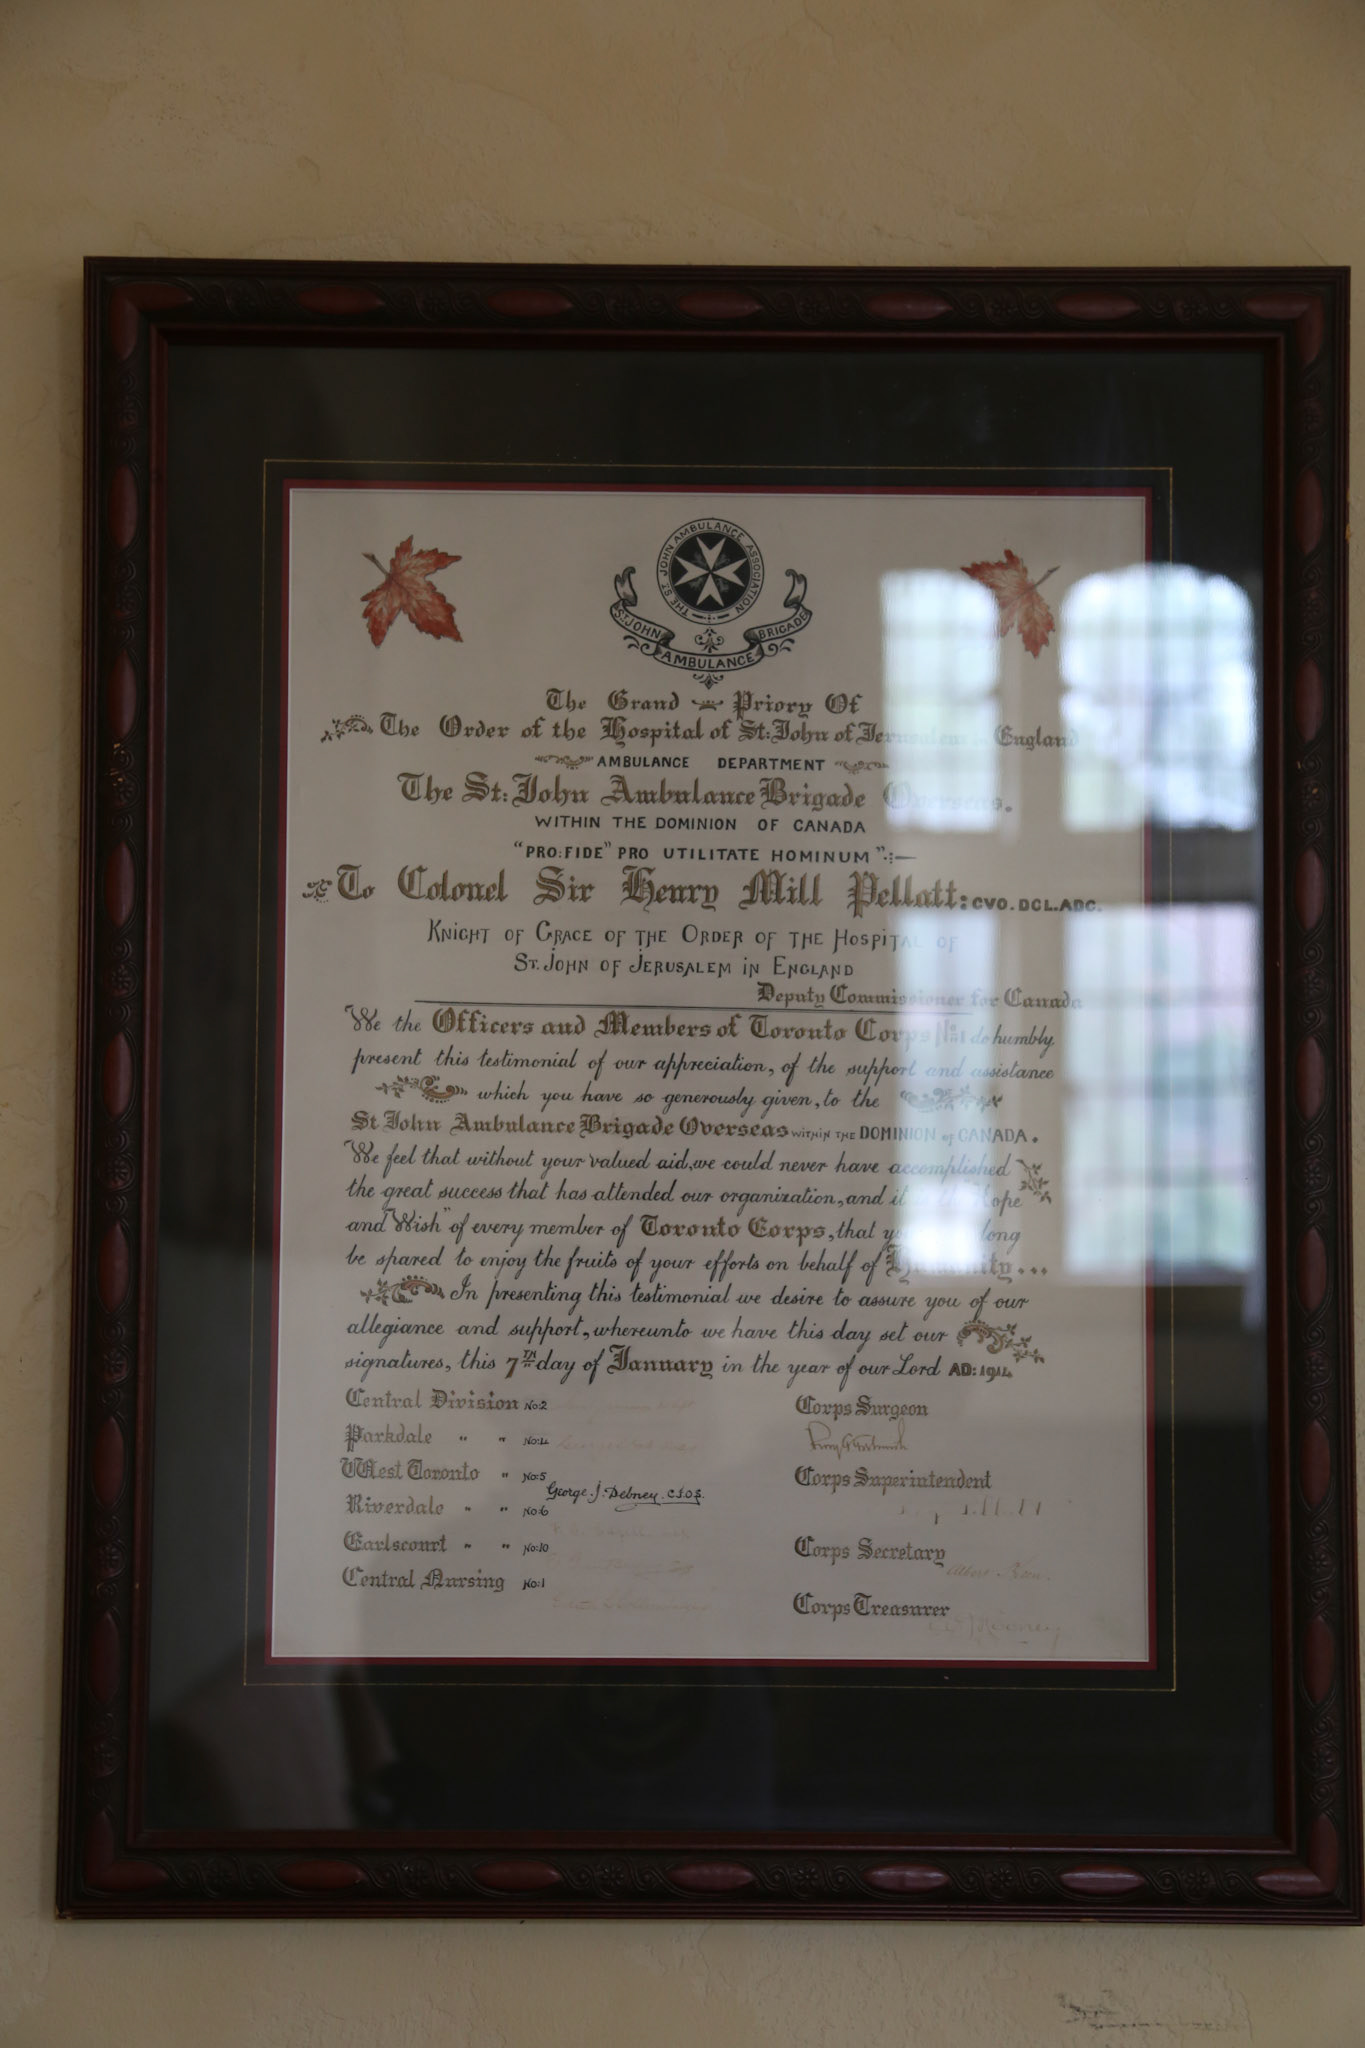 THE ST. JOHN AMBULANCE ASSOCIATION
ST. JOHN AMBULANCE BRIGADE
The Grand Priory Of
The Order of the Hospital of St: John of Jerusalem in England
AMBULANCE DEPARTMENT
The St: John Ambulance Brigade Overseas.
WITHIN THE DOMINION OF CANADA
"PRO: FIDE" PRO UTILITATE HOMINUM" :—
To Colonel Sir Henry Mill Pellatt: CVO. DCL. ADC.
KNIGHT OF GRACE OF THE ORDER OF THE HOSPITAL OF
ST. JOHN OF JERUSALEM IN ENGLAND
Deputy Commissioner for Canada
We the Officers and Members of Toronto Corps No: 1 do humbly
present this testimonial of our appreciation, of the support and assistance
which you have so generously given, to the
St John Ambulance Brigade Overseas WITHIN THE DOMINION of CANADA.
We feel that without your valued aid, we could never have accomplished
the great success that has attended our organization, and it Hope
and "Wish" of every member of Toronto Corps, that long
be spared to enjoy the fruits of your efforts on behalf of Humanity...
In presenting this testimonial we desire to assure you of our
allegiance and support, whereunto we have this day set our
signatures, this 7TH day of January in the year of our Lord AD: 1914
Central Division No: 2
Corps Surgeon
Parkdale " " No: 4
West Toronto " No: 5
Corps Superintendent
George. J. Debney. C.S.O.S.
Riverdale " " No: 6
Earlscourt " " No: 10
Corps Secretary
Albert
Central Nursing No: 1
Corps Treasurer